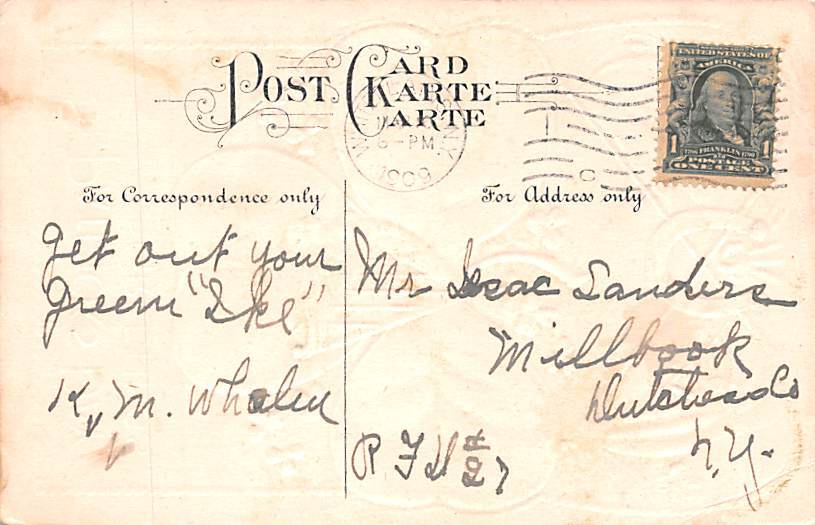 POST CARD
KARTE
CARTE
N.Y.
6-PM
1909
C
UNITED STATES OF
AMERICA
1 1
FRANKLIN
POSTAGE
ONE CENT
For Correspondence only
For Address only
Get out your
green "Ike"
K. M. Whalen
Mr Isaac Sanders
Millbrook
Dutchess Co
N.Y.
R F D #